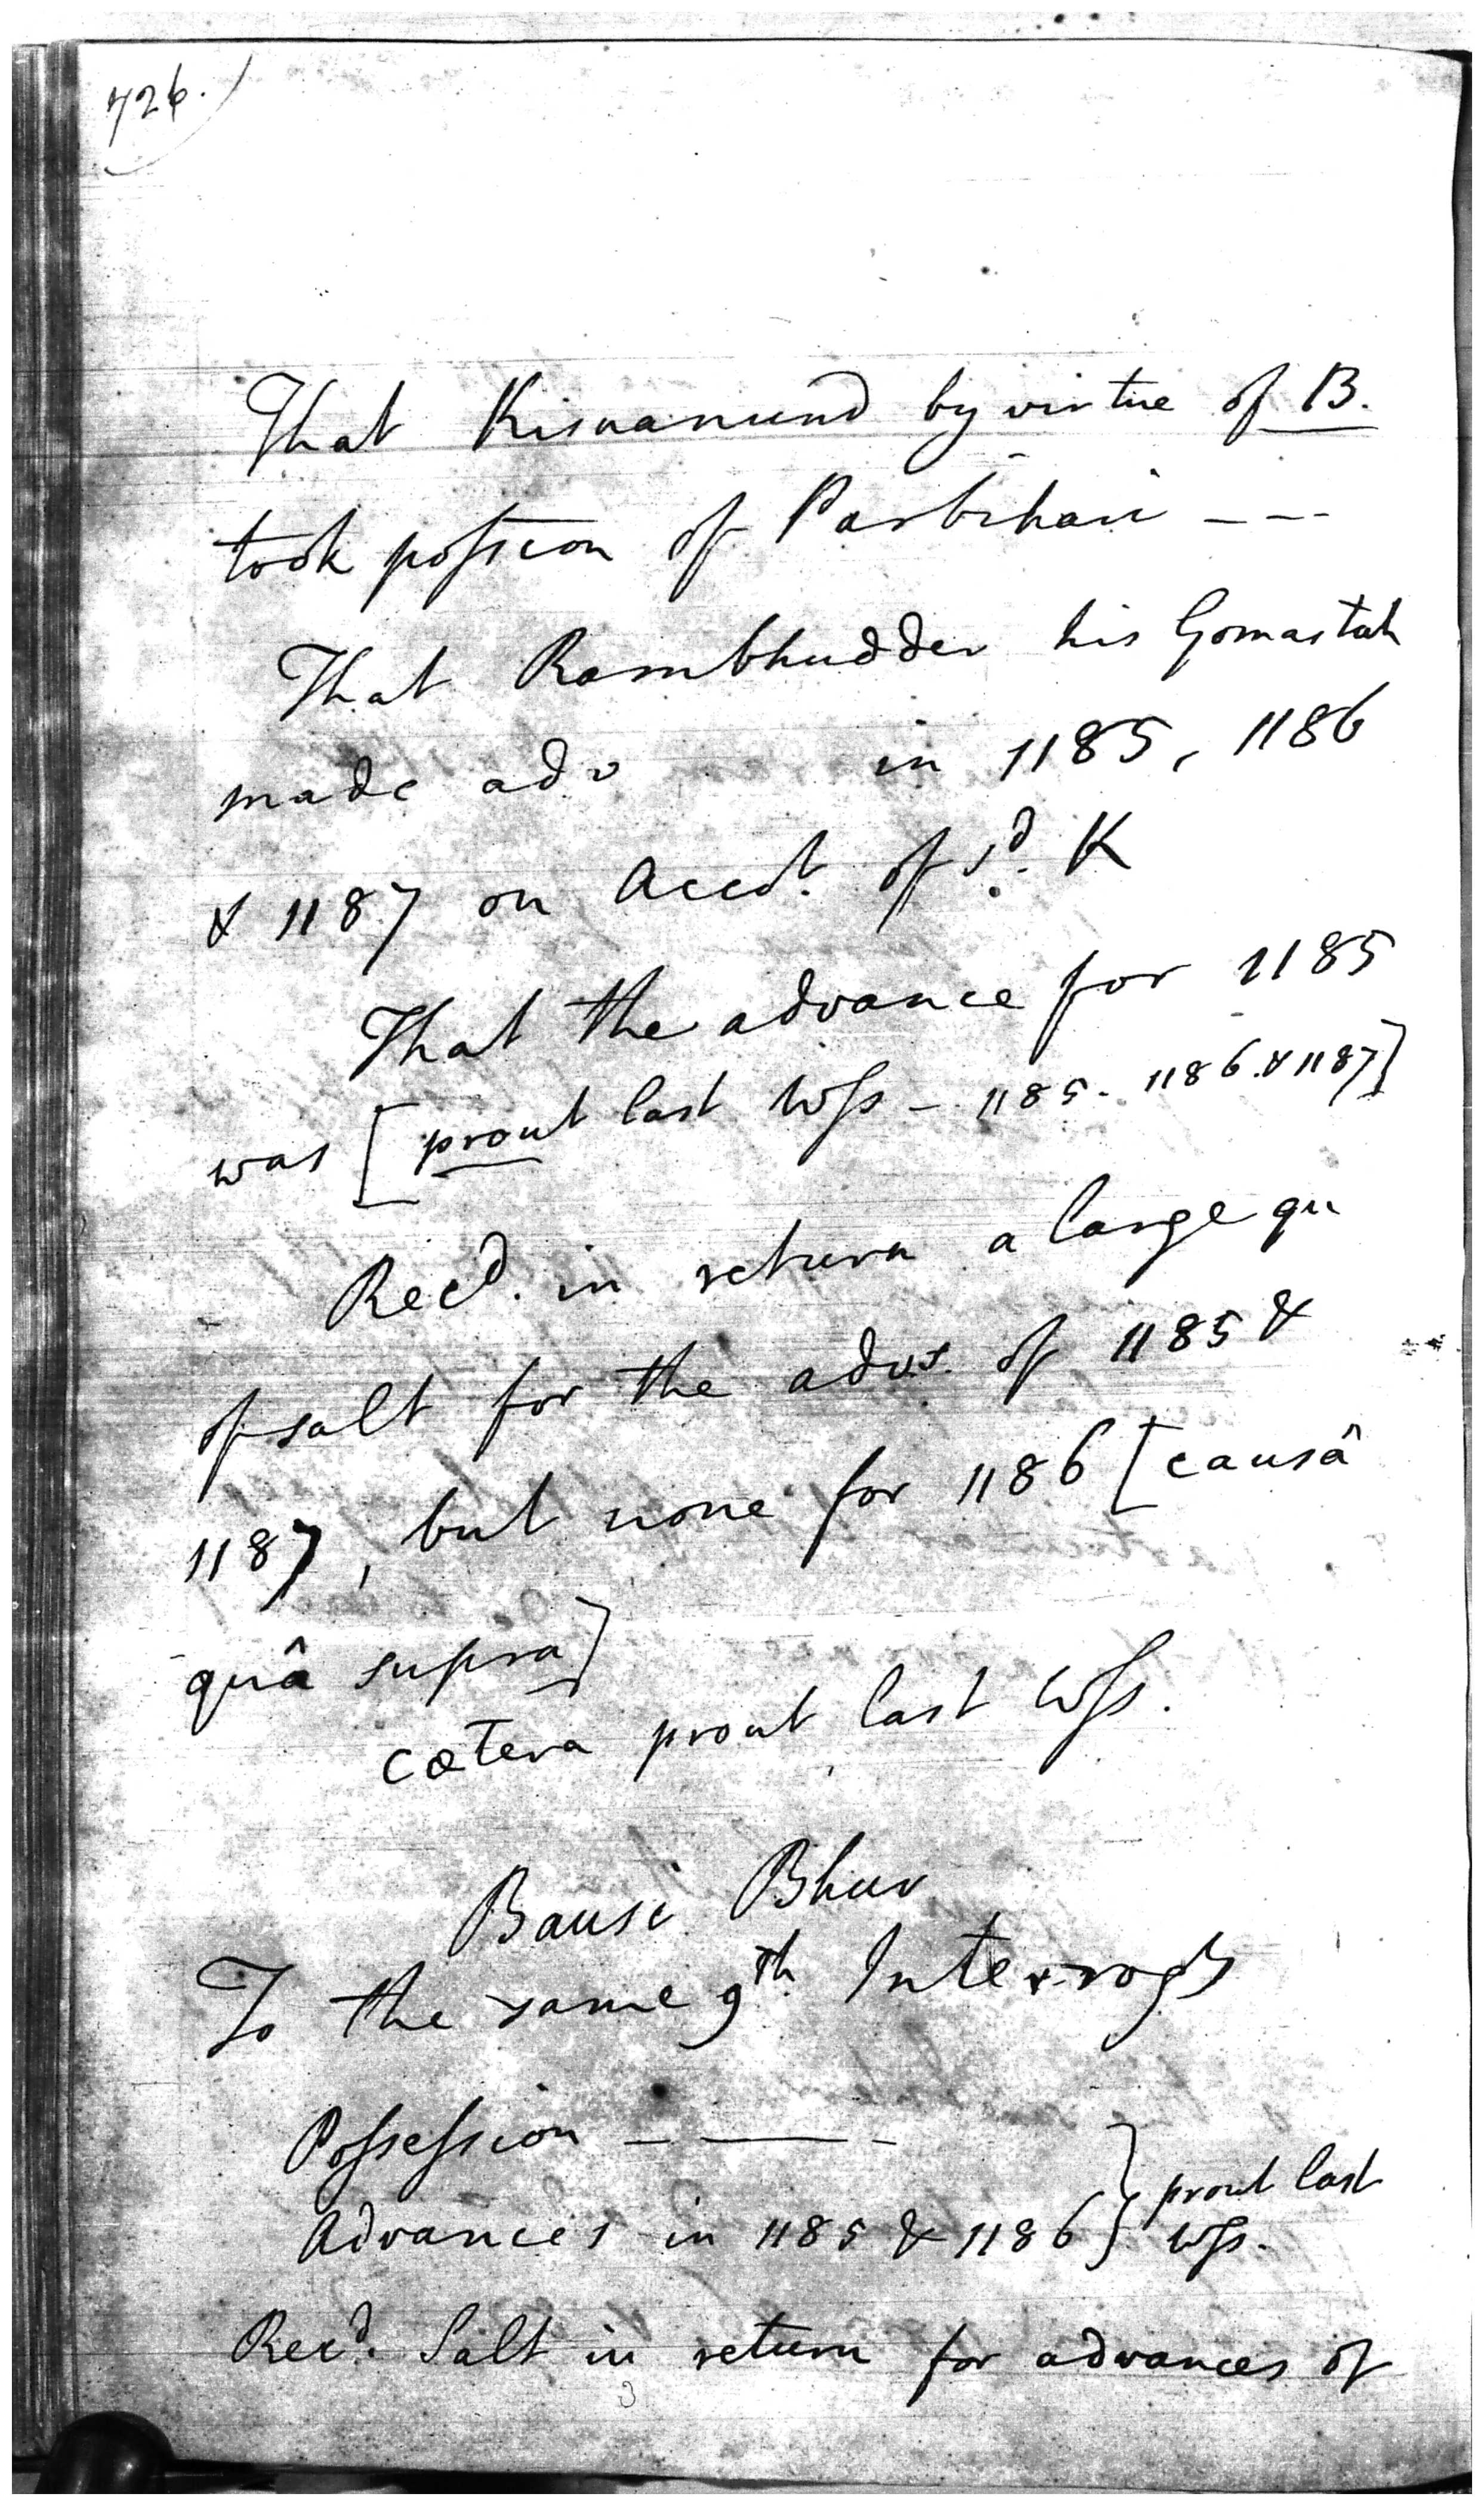 726.
That Kisnanund by virtue of B.
took possion of Parbihari ---
That Rambhudder his Gomastah
made adv in 1185, 1186
& 1187 on Accot. of sd. K
That the advance for 1185
was [prout last Wss - 1185. 1186. & 1187]
Recd. in return a large qu
of salt for the advs. of 1185 &
1187, but none for 1186 [causâ
quâ supra]
cætera prout last Wss.
Bausi Bhur
To the same 9th Interrogy
Possession -----
Advances in 1185 & 1186 } prout last
Wss.
Recd. Salt in return for advances of